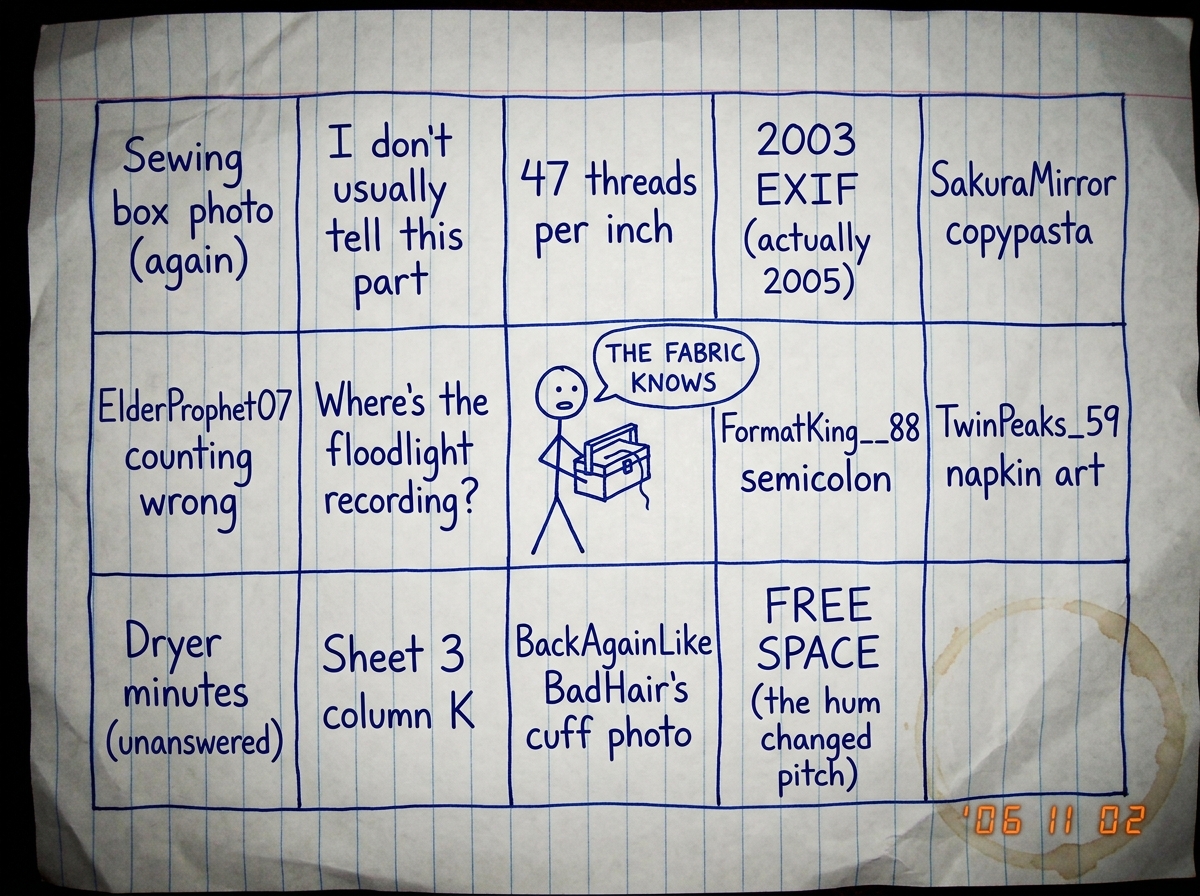 Sewing
box photo
(again)
I don't
usually
tell this
part
47 threads
per inch
2003
EXIF
(actually
2005)
SakuraMirror
copypasta
ElderProphet07
counting
wrong
Where's the
floodlight
recording?
THE FABRIC
KNOWS
FormatKing__88
semicolon
TwinPeaks_59
napkin art
Dryer
minutes
(unanswered)
Sheet 3
column K
BackAgainLike
BadHair's
cuff photo
FREE
SPACE
(the hum
changed
pitch)
'06 11 02